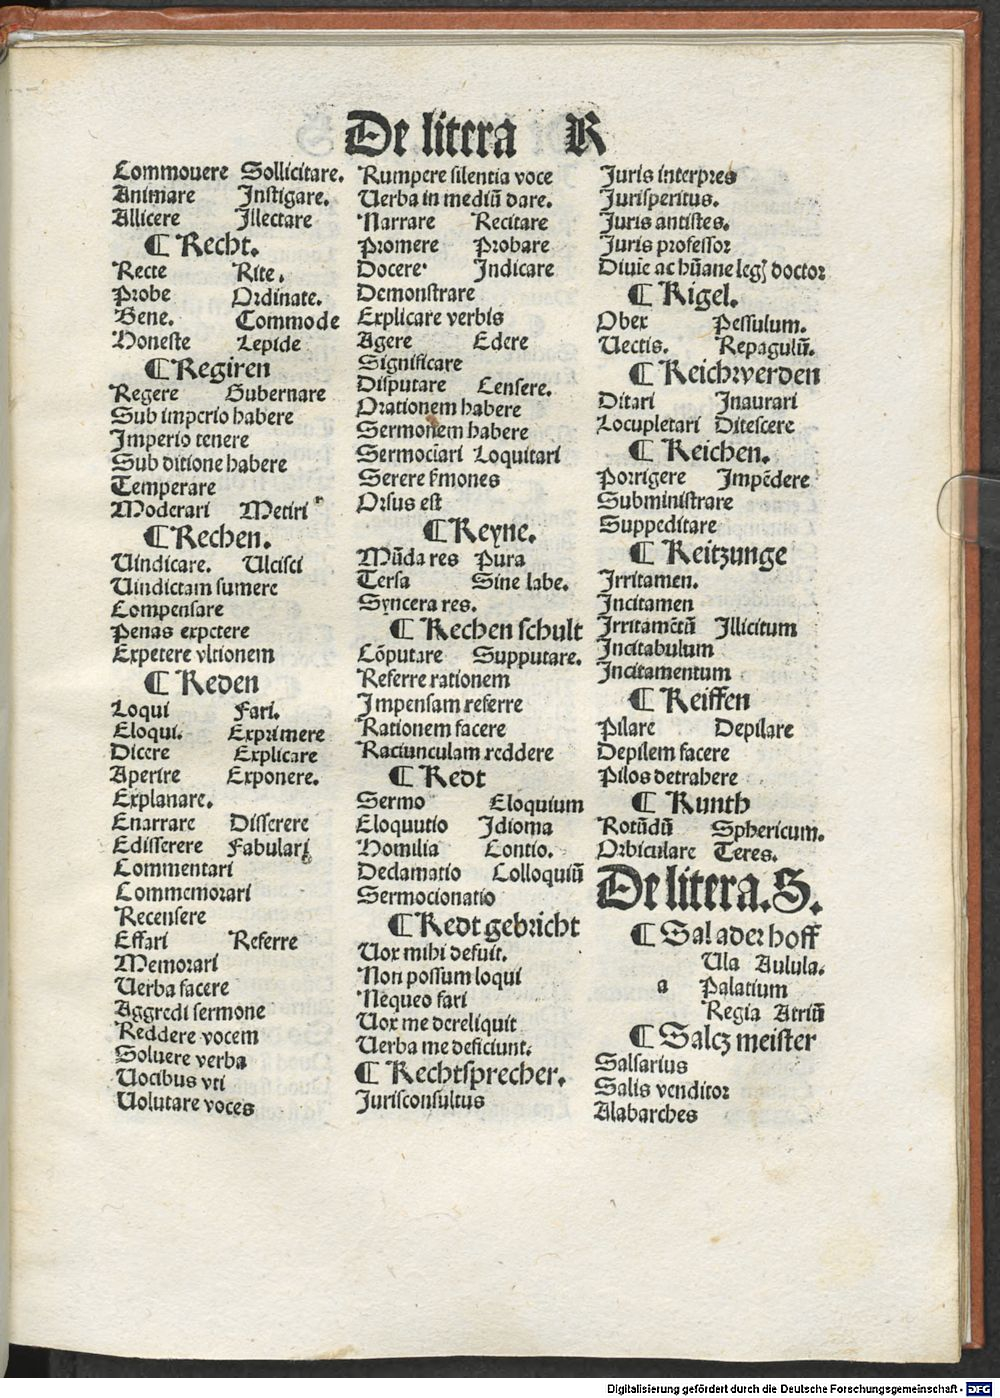 De litera R
Commouere Sollicitare.
Animare Instigare.
Allicere Illectare
¶ Recht.
Recte Rite.
Probe Ordinate.
Bene. Commode
Honeste Lepide
¶ Regiren
Regere Gubernare
Sub imperio habere
Imperio tenere
Sub ditione habere
Temperare
Moderari Metiri
¶ Rechen.
Uindicare. Ulcisci
Uindictam sumere
Compensare
Penas expetere
Expetere vltionem
¶ Reden
Loqui Fari.
Eloqui. Exprimere
Dicere Explicare
Aperire Exponere.
Explanare.
Enarrare Disserere
Edisserere Fabulari
Commentari
Commemorari
Recensere
Effari Referre
Memorari
Uerba facere
Aggredi sermone
Reddere vocem
Soluere verba
Uocibus vti
Uolutare voces
Rumpere silentia voce
Uerba in mediū dare.
Narrare Recitare
Promere Probare
Docere Indicare
Demonstrare
Explicare verbis
Agere Edere
Significare
Disputare Censere.
Orationem habere
Sermonem habere
Sermocīari Loquitari
Serere s̄mones
Orsus est
¶ Reyne.
Mūda res Pura
Tersa Sine labe.
Syncera res.
¶ Rechen schult
Cōputare Supputare.
Referre rationem
Impensam referre
Rationem facere
Raciunculam reddere
¶ Redt
Sermo Eloquium
Eloquutio Idioma
Homilia Contio.
Declamatio Colloquiū
Sermocionatio
¶ Redt gebricht
Uox mihi defuit.
Non possum loqui
Nequeo fari
Uox me dereliquit
Uerba me deficiunt.
¶ Rechtsprecher.
Jurisconsultus
Juris interpres
Jurisperitus.
Juris antistes.
Juris professor
Diuīe ac hūane legꝫ doctor
¶ Rigel.
Obex Pessulum.
Uectis. Repagulū.
¶ Reichwerden
Ditari Inaurari
Locupletari Ditescere
¶ Reichen.
Porrigere Impēdere
Subministrare
Suppeditare
¶ Reitzunge
Irritamen.
Incitamen
Irritamētū Illicitum
Incitabulum
Incitamentum
¶ Reiffen
Pilare Depilare
Depilem facere
Pilos detrahere
¶ Runth
Rotūdū Sphericum.
Orbiculare Teres.
De litera. S.
¶ Sal ader hoff
Ula Aulula.
a Palatium
Regia Atriū
¶ Salcz meister
Salsarius
Salis venditor
Alabarches
Digitalisierung gefördert durch die Deutsche Forschungsgemeinschaft - DFG